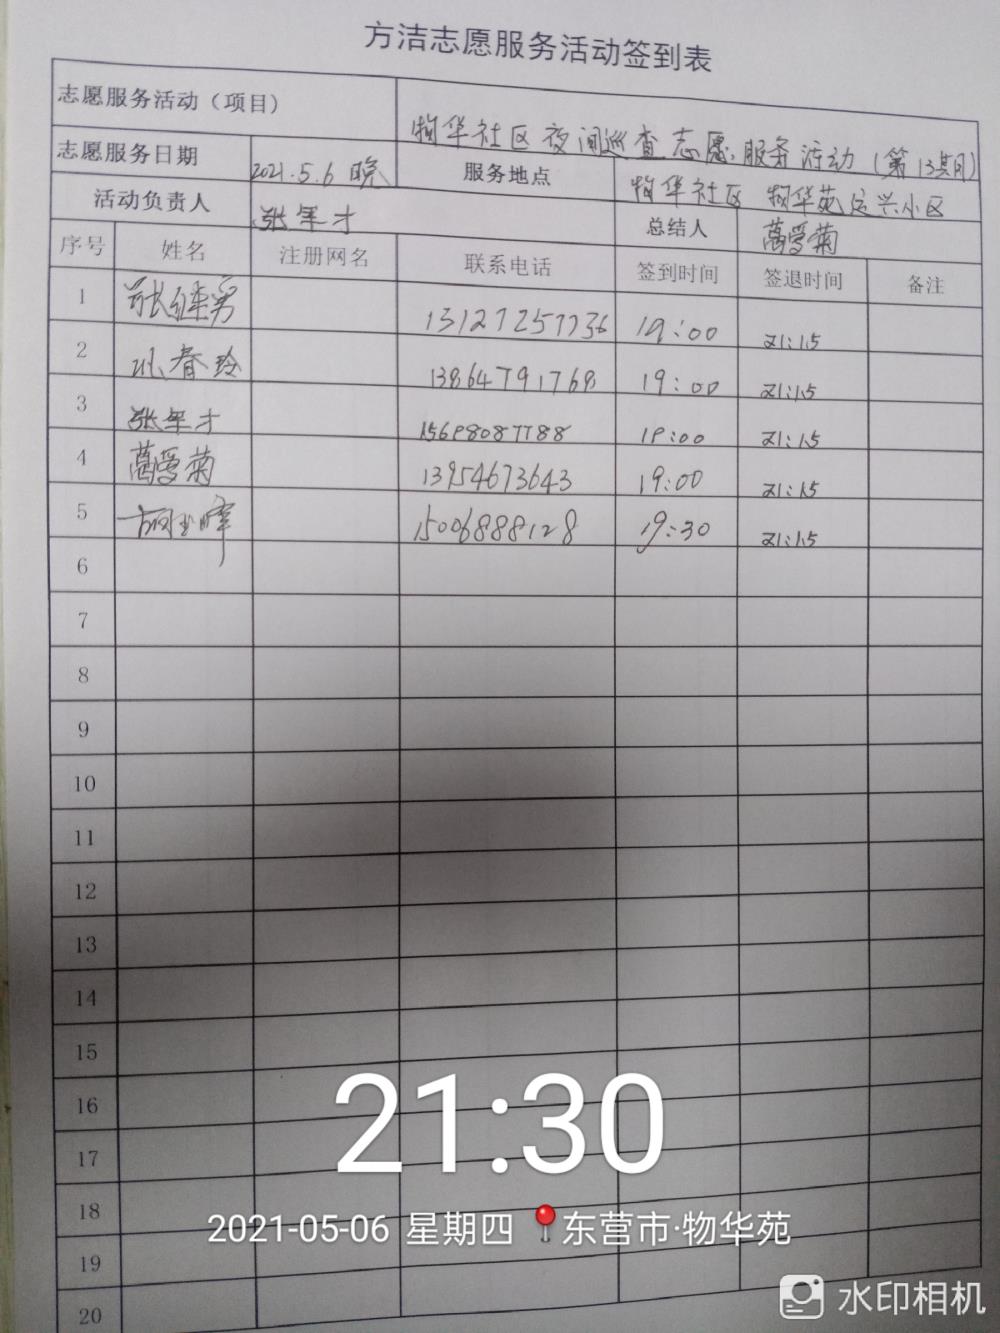 方洁志愿服务活动签到表
志愿服务活动（项目） 物华社区夜间巡查志愿服务活动（第13期）
志愿服务日期 2021.5.6 晚 服务地点 物华社区 物华苑运兴小区
活动负责人 张军才 总结人 葛爱菊
序号 姓名 注册网名 联系电话 签到时间 签退时间 备注
1 13127257736 19:00 21:15
2 春玲 13864791768 19:00 21:15
3 张军才 15698087788 19:00 21:15
4 葛爱菊 13954673643 19:00 21:15
5 15006888128 19:30 21:15
6
7
8
9
10
11
12
13
14
15
16
17
18
19
20
21:30
2021-05-06 星期四 东营市·物华苑
水印相机